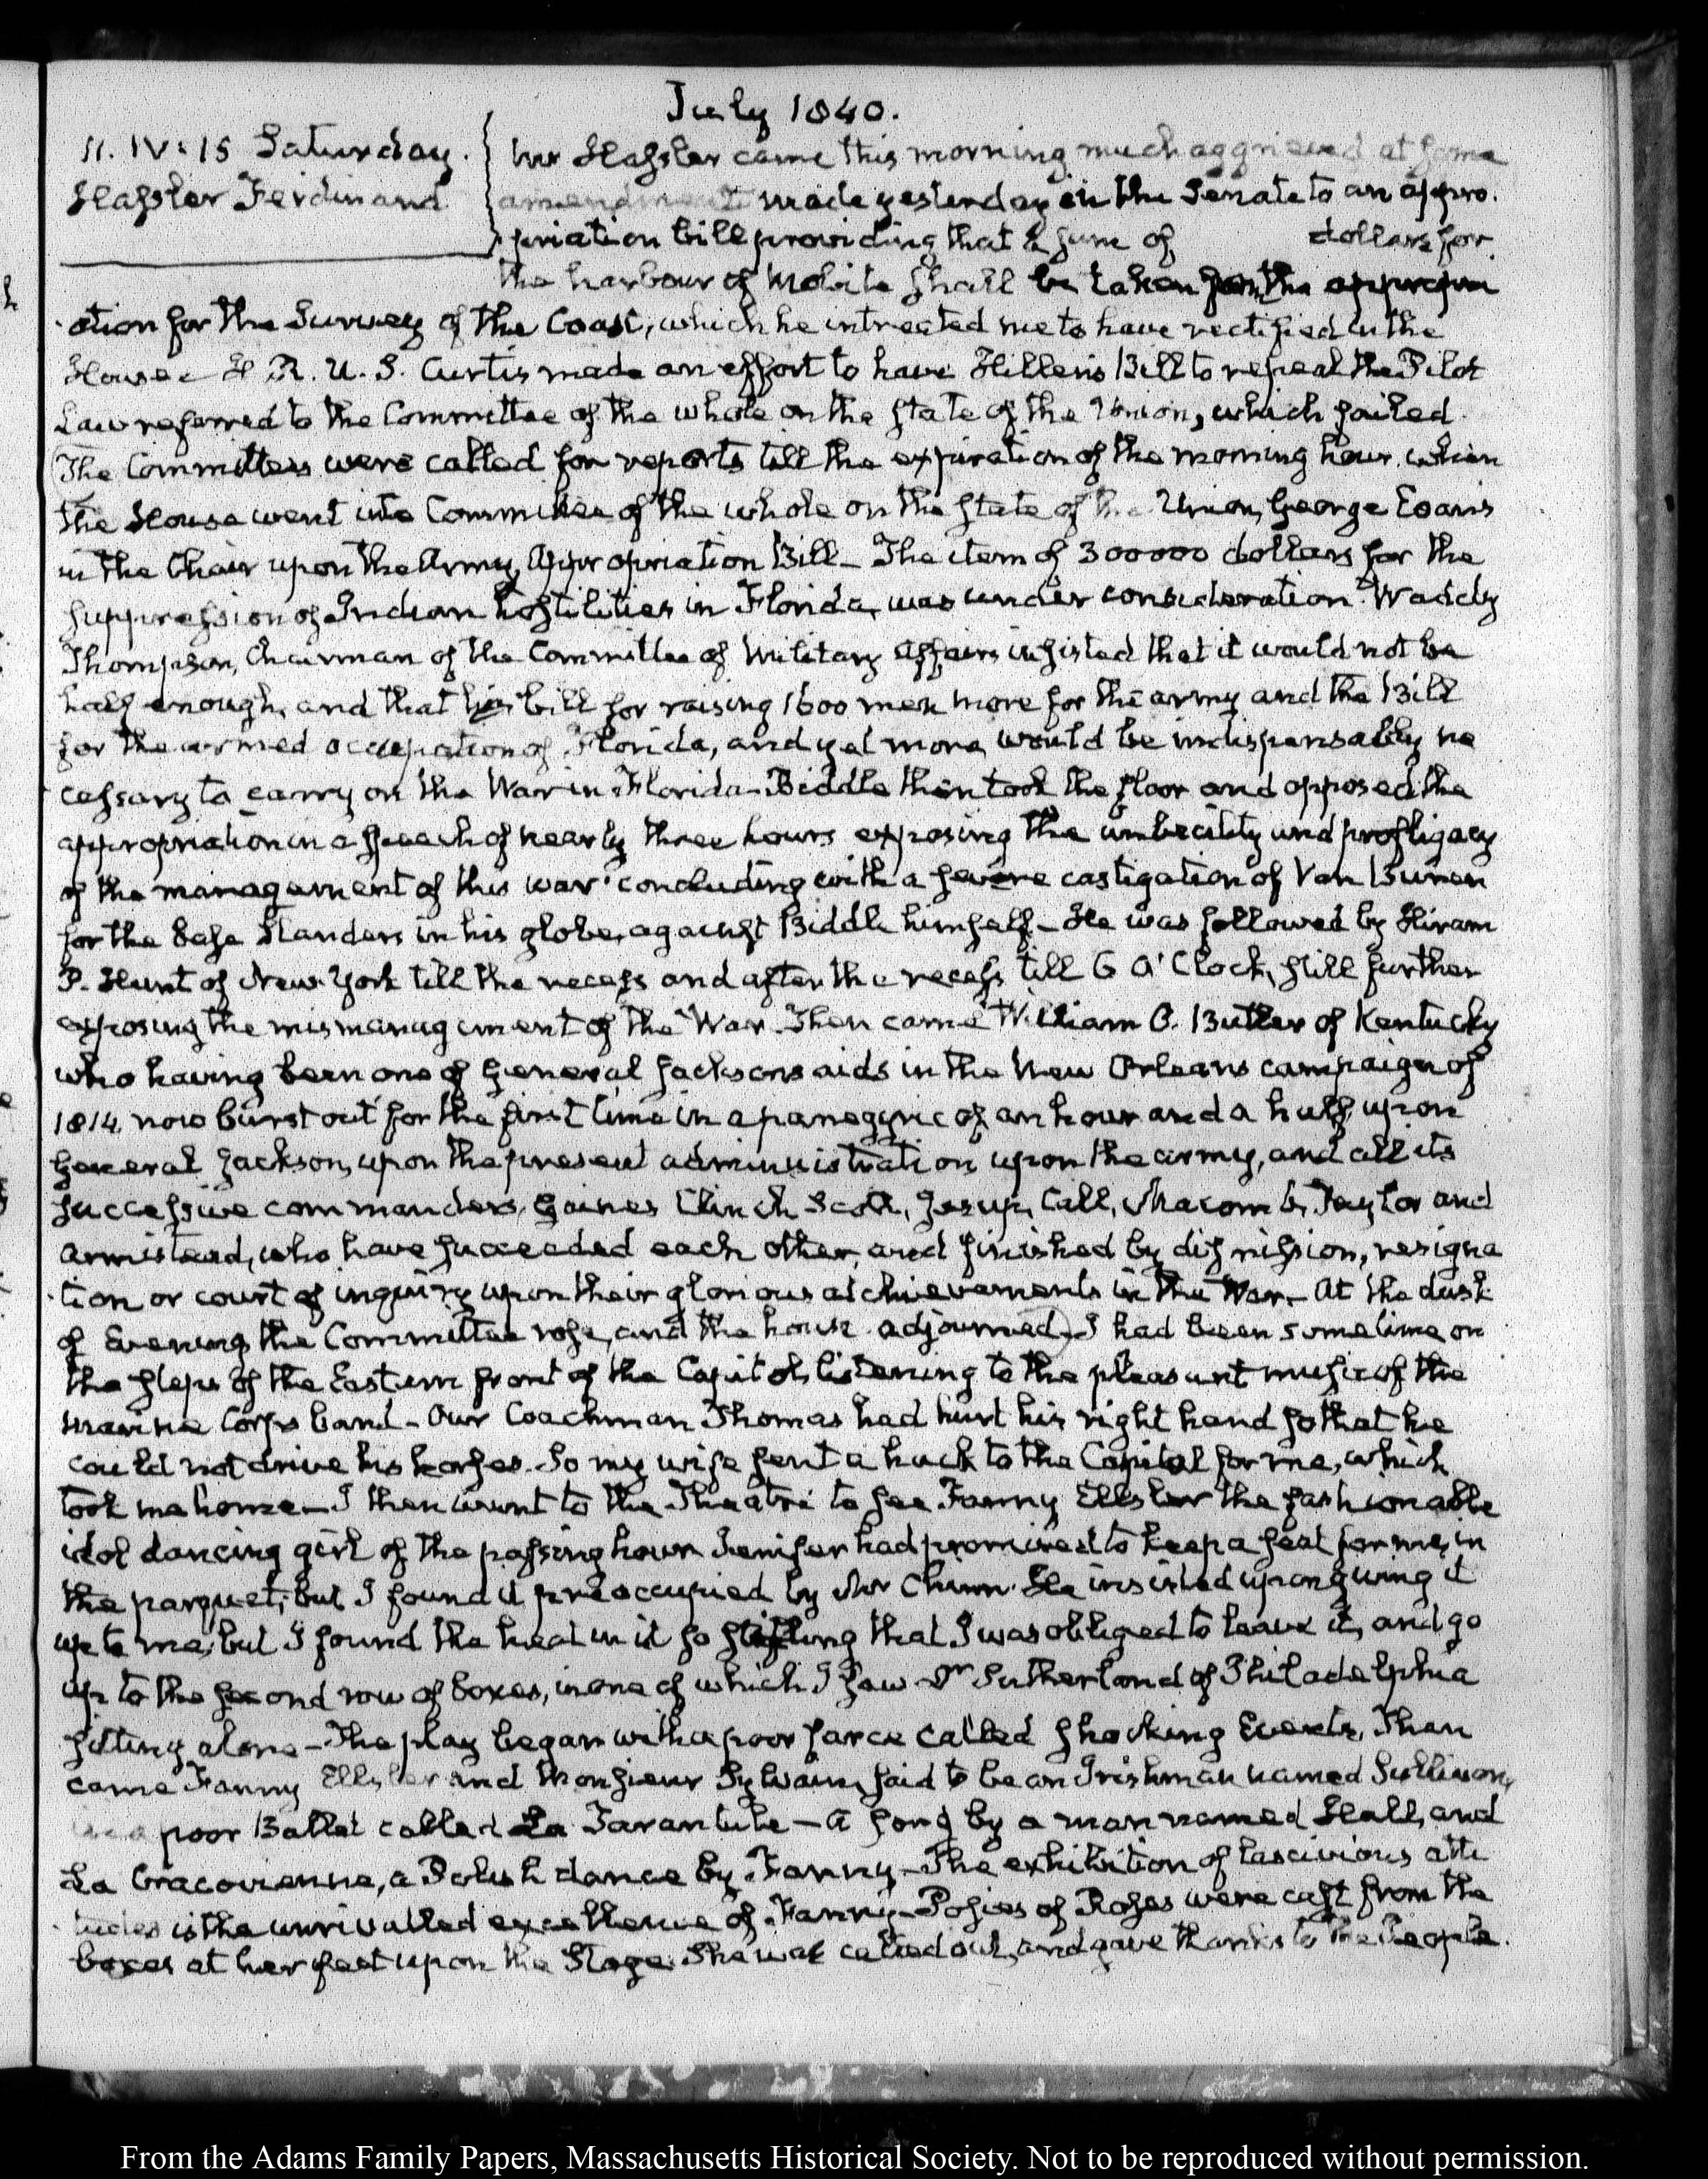 July 1840.
11. IV:15 Saturday.
Hassler Ferdinand
Mr Hassler came this morning much aggrieved at some
amendment made yesterday in the Senate to an appro.
priation bill providing that a sum of dollars for
the harbour of Mobile shall be taken from the appropri
ation for the Survey of the Coast, which he intreated me to have rectified in the
House. H. R. U. S. Curtis made an effort to have Hillen's Bill to repeal the Pilot
Law referred to the Committee of the whole on the state of the Union, which failed.
The Committees were called for reports till the expiration of the morning hour. when
the House went into Committee of the whole on the state of the Union, George Evans
in the Chair upon the Army Appropriation Bill— The item of 300000 dollars for the
suppression of Indian hostilities in Florida, was under consideration. Waddy
Thompson, Chairman of the Committee of Military Affairs insisted that it would not be
half enough, and that his bill for raising 1600 men more for the army and the Bill
for the armed occupation of Florida, and yet more, would be indispensably ne
cessary to carry on the War in Florida— Biddle then took the floor and opposed the
appropriation in a speech of nearly three hours exposing the imbecility and profligacy
of the management of this war concluding with a severe castigation of Van Buren
for the base slanders in his globe, against Biddle himself— He was followed by Hiram
P. Hunt of New-York till the recess and after the recess till 6 O'Clock, still further
exposing the mismanagement of the War. Then came William O. Butler of Kentucky
who having been one of General Jacksons aids in the New Orleans campaign of
1814 now burst out for the first time in a panegyric of an hour and a half, upon
General Jackson, upon the present administration, upon the army, and all its
successive commanders, Gaines Clinch Scott, Jesup, Call, Macomb, Taylor and
Armistead, who have succeeded each other, and finished by dismission, resigna
tion or court of inquiry upon their glorious atchievements in the War— At the dusk
of Evening the Committee rose, and the house adjourned. I had been some time on
the steps of the Eastern front of the Capitol, listening to the pleasant music of the
marine Corps band— Our Coachman Thomas had hurt his right hand so that he
could not drive his horses. So my wife sent a hack to the Capitol for me, which
took me home— I then went to the Theatre to see Fanny Ellsler the fashionable
idol dancing girl of the passing hour. Jenifer had promised to keep a seat for me, in
the parquet; but I found it preoccupied by Mr Chinn. He insisted upon giving it
up to me; but I found the heat in it so stifling that I was obliged to leave it, and go
up to the second row of boxes, in one of which I saw Dr Sutherland of Philadelphia
sitting alone— The play began with a poor farce called Shocking Events, Then
came Fanny Ellsler and Monsieur Sylvain, said to be an Irishman named Sullivan,
in a poor Ballet called La Tarantule— A song by a man named Hall, and
La Cracovienne, a Polish dance by Fanny— The exhibition of lascivious atti
tudes is the unrivalled excellence of Fanny— Posies of Roses were cast from the
boxes at her feet upon the Stage. She was called out, and gave thanks to the People.
From the Adams Family Papers, Massachusetts Historical Society. Not to be reproduced without permission.